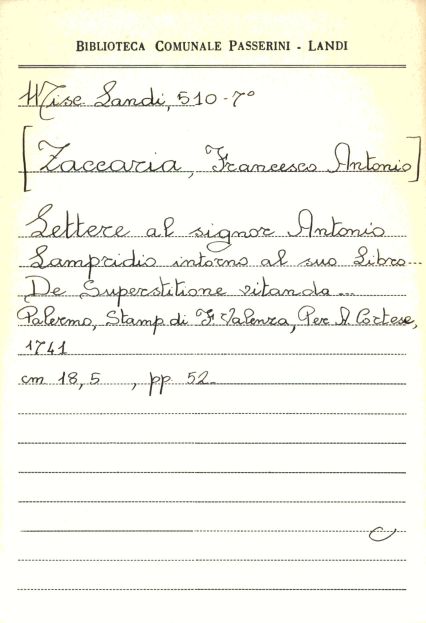 BIBLIOTECA COMUNALE PASSERINI - LANDI
Misc Landi, 510-7°
[Zaccaria, Francesco Antonio]
Lettere al signor Antonio
Lampridio intorno al suo Libro...
De Superstitione vitanda...
Palermo, Stamp. di F. Valenza, Per A. Cortese,
1741
cm 18,5 , pp 52.
C